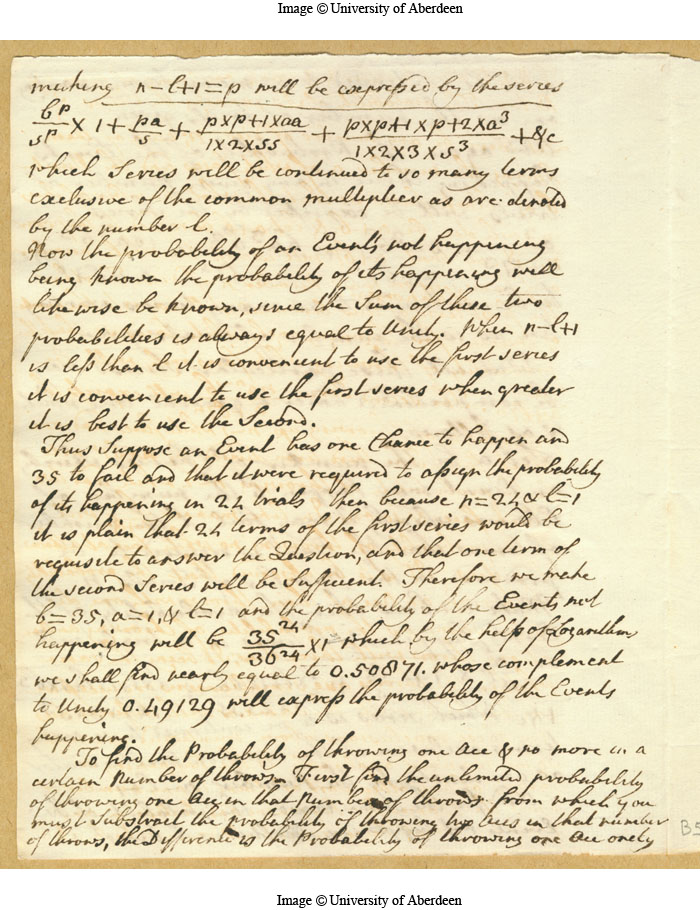 Image © University of Aberdeen
making n−l+1=p will be expressed by the series
b^p/s^p × 1 + pa/s + p×p+1×aa/1×2×ss + p×p+1×p+2×a^3/1×2×3×s^3 + &c
which Series will be continued to so many terms
exclusive of the common multiplier as are denoted
by the number l.
Now the probability of an Event's not happening
being known the probability of its happening will
likewise be known, since the Sum of these two
probabilities is always equal to Unity. When n−l+1
is less than l it is convenient to use the first series
it is convenient to use the first series when greater
it is best to use the Second.
Thus Suppose an Event has one Chance to happen and
35 to fail and that it were required to assign the probability
of its happening in 24 trials then because n=24 & l=1
it is plain that 24 terms of the first series would be
requisite to answer the Question, and that one term of
the second Series will be Sufficient. Therefore we make
b=35, a=1, & l=1 and the probability of the Events not
happening will be 35^24/36^24 ×1 which by the help of Logarithms
we shall find nearly equal to 0.50871. whose complement
to Unity 0.49129 will express the probability of the Events
happening.
To find the Probability of throwing one Ace & no more in a
certain Number of throws. First find the unlimited probability
of throwing one Ace in that Number of throws from which you
must Substract the probability of throwing two Aces in that number
of throws, the Difference is the Probability of throwing one Ace onely
Image © University of Aberdeen